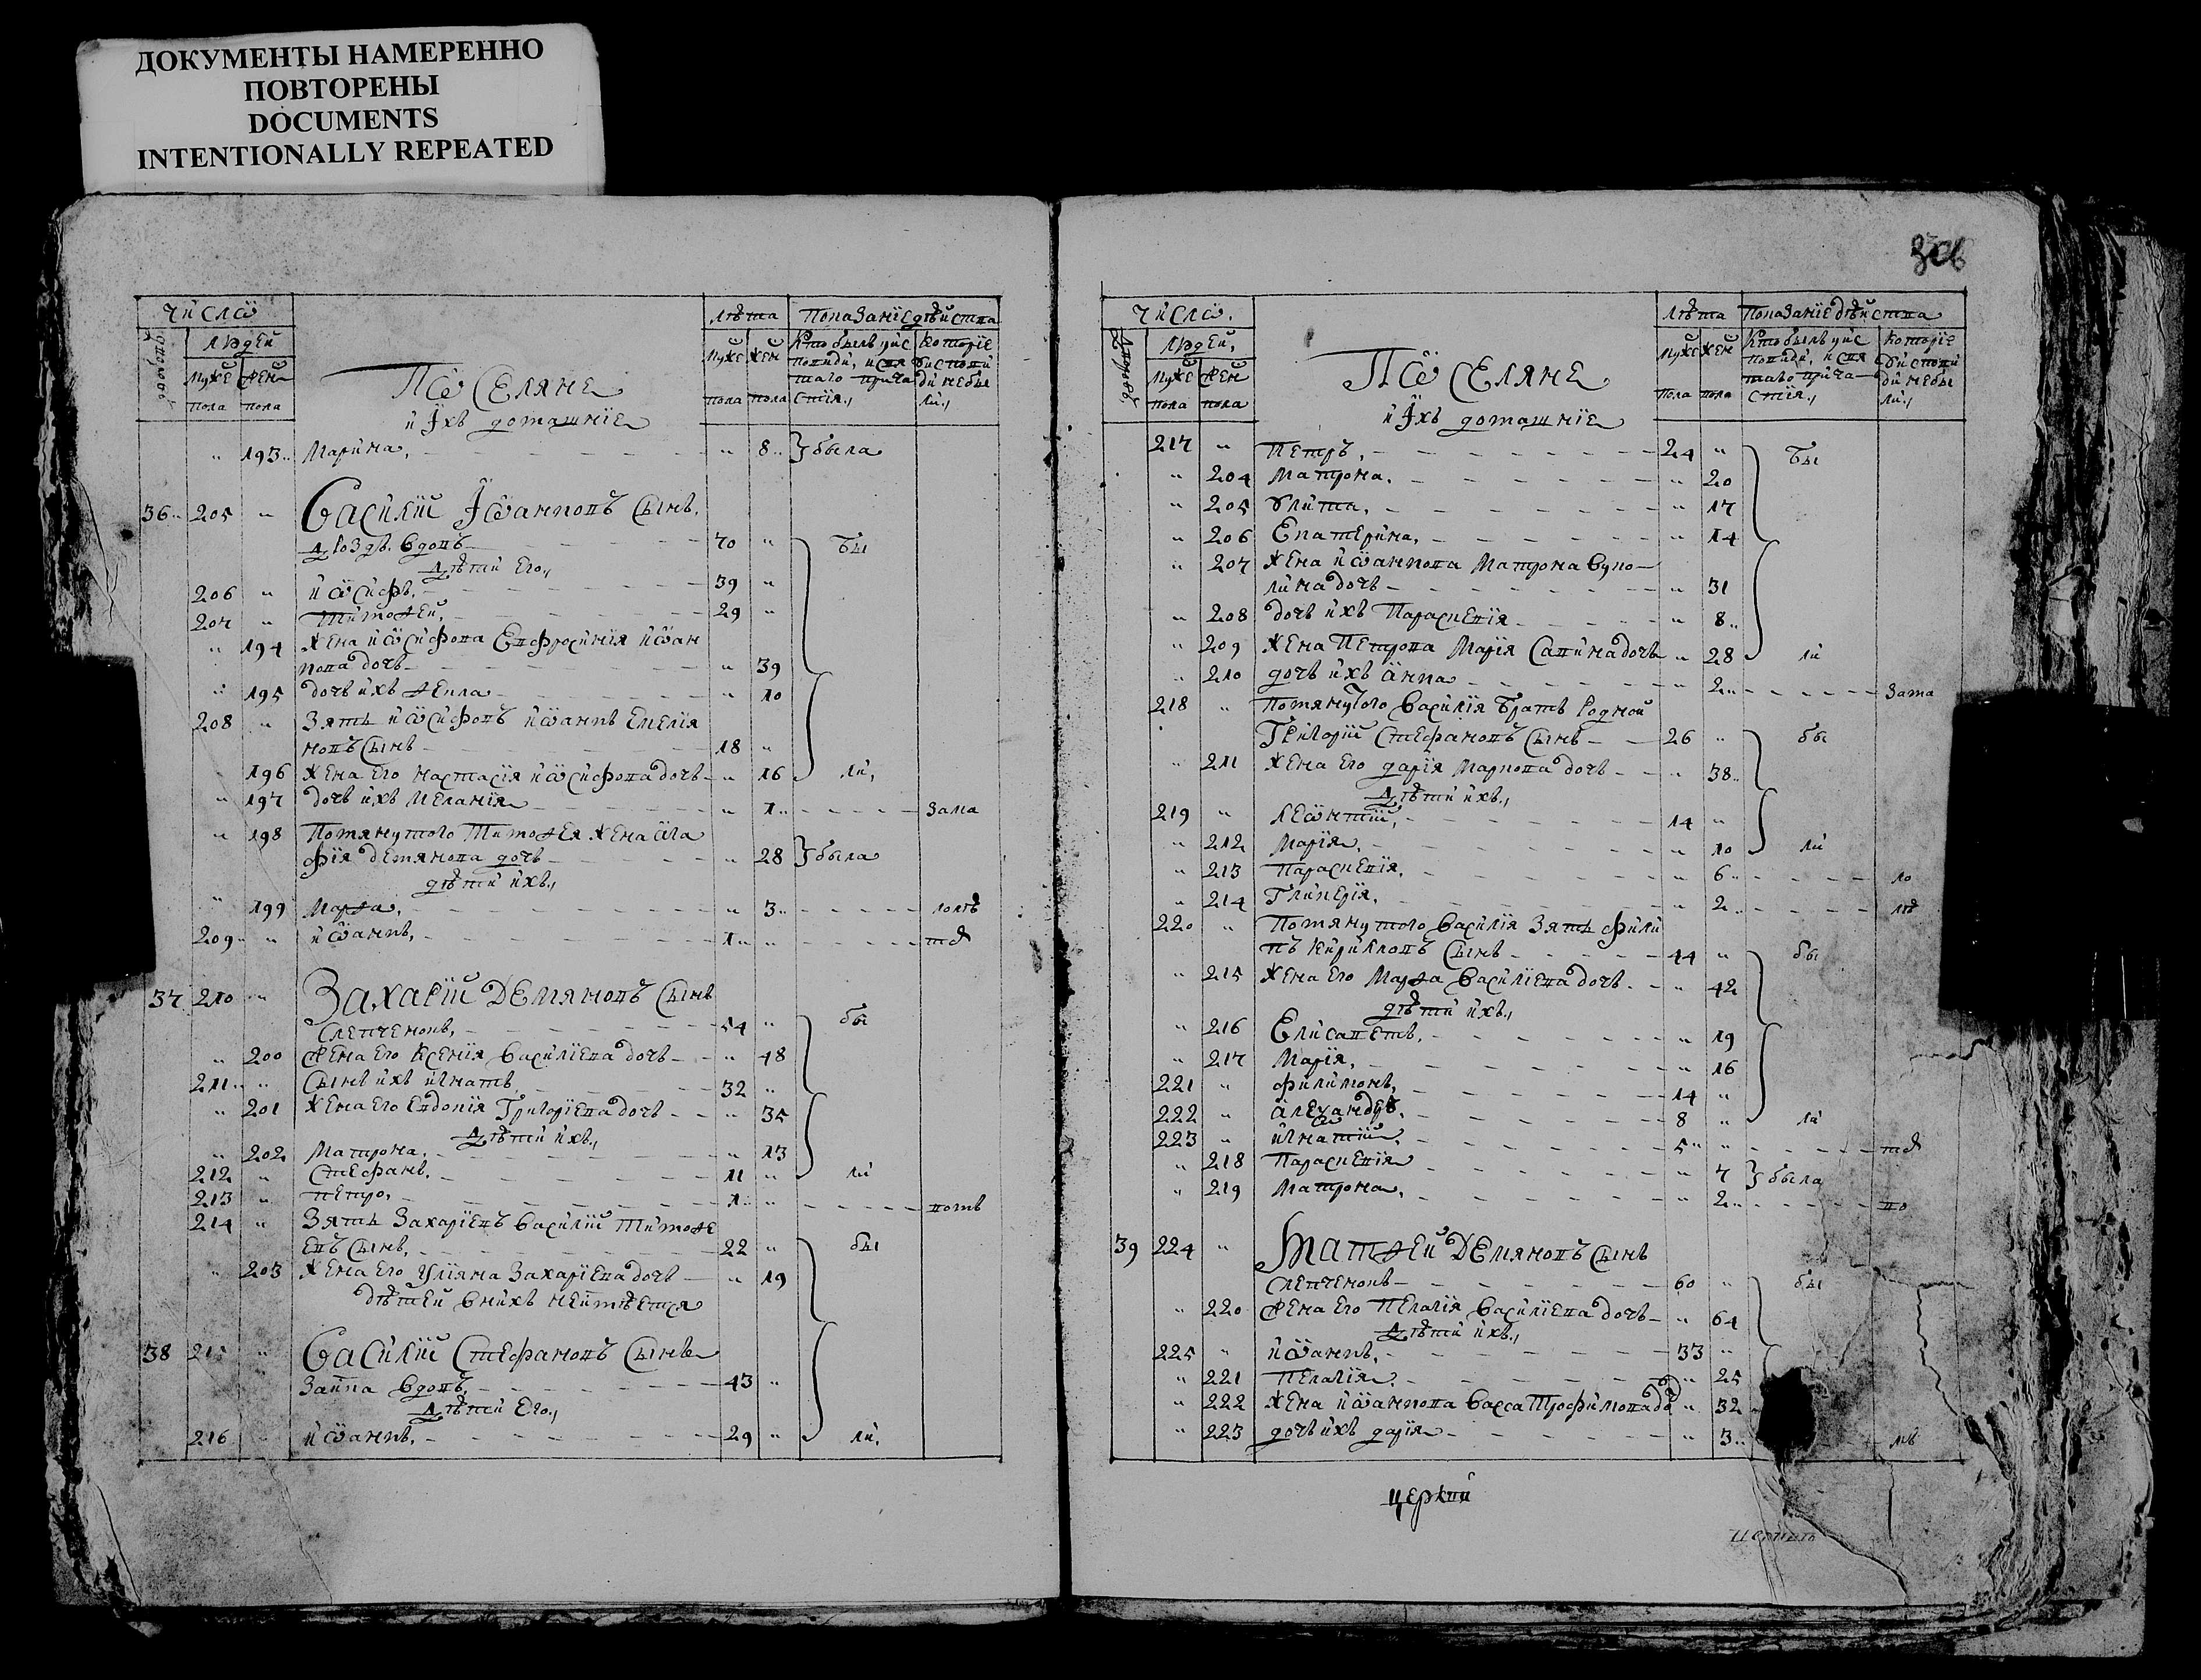 ДОКУМЕНТЫ НАМЕРЕННО
ПОВТОРЕНЫ
DOCUMENTS
INTENTIONALLY REPEATED
Число
Людей
Муже Жен
пола пола
Посѣляне
и Ихъ домашніе
Лѣта
Муже Жен
пола пола
Показаніе дѣйства
Кто былъ у ис
повиди, и свя
таго прича
стія.,
Которіе
у исповѣ
ди не бы
ли.,
" 193 Марина, " 8 была
36 205 " Василій Іѡанновъ Сынъ,
Гроздъ. вдовъ 70 " бы
Дѣти Его,
206 " иѡсифъ, 39 "
207 " Тимоѳей, 29 "
" 194 Жена иѡсифова Евфросинія иѡан
нова дочь " 39
" 195 дочь ихъ Ѳекла " 10
208 " Зять иѡсифовъ иѡаннъ Емелія
новъ Сынъ 18 "
196 Жена Его Настасія иѡсифова дочь " 16 ли,
" 197 дочь ихъ Меланія " 1 зама
" 198 Помянутого Тимоѳея Жена Ага
фія демянова дочь " 28 была
дѣти ихъ,
" 199 Марѳа, " 3 лолѣ
209 " иѡаннъ, 1 " тст
37 210 " Захарій Демяновъ Сынъ
Слепченокъ, 54 " бы
" 200 Жена Его Ксенія Василіева дочь " 48
211 " Сынъ ихъ игнатъ 32 "
" 201 Жена Его Евдокія Григоріева дочь " 35
Дѣти ихъ,
" 202 Матрона, " 13
212 " Стефанъ, 11 " ли
213 " Петро, 1 " вотъ
214 " Зять Захаріевъ Василій Тимоѳе
евъ Сынъ, 22 " бы
" 203 Жена Его Уліяна Захаріева дочь " 19
дѣтей в нихъ неймѣется
38 215 " Василій Стефановъ Сынъ
Заика вдовъ, 43 "
Дѣти Его,
216 " иѡаннъ, 29 " ли,
306
Число.
Людей,
Муже Жен
пола пола
Посѣляне
и Ихъ домашніе
Лѣта
Муже Жен
пола пола
Показаніе дѣйства
Кто былъ у ис
повиди, и свя
таго прича
стія.,
Которіе
у исповѣ
ди не бы
ли.,
217 " Петръ, 24 " бы
" 204 Матрона. " 20
" 205 Улита, " 17
" 206 Екатерина, " 14
" 207 Жена иѡаннова Матрона Вуко
лина дочь " 31
" 208 дочь ихъ Параскевія " 8
" 209 Жена Петрова Марія Савина дочь " 28 ли
" 210 дочь ихъ Анна " 2 зама
218 " Помянутого Василія Братъ Родной
Григорій Стефановъ Сынъ 26 " бы
" 211 Жена Его дарія Маркова дочь " 38
Дѣти ихъ,
219 " Леѡнтій, 14 "
" 212 Марія, " 10 ли
" 213 Параскевія, " 6 ло
" 214 Гликерія, " 2 лѣ
220 " Помянутого Василія Зять Фили
пъ Кирилловъ Сынъ 44 " бы
" 215 Жена Его Марѳа Василіева дочь " 42
дѣти ихъ,
" 216 Елисаветъ, " 19
" 217 Марія, " 16
221 " Филимонъ, 14 "
222 " Алеѯандръ, 8 " ли
223 " игнатій, 5 " тст
" 218 Параскевія " 7 была
" 219 Матрона, " 2 во
39 224 " Матѳей Демяновъ Сынъ
Слепченокъ 60 " бы
" 220 Жена Его Пелагія Василіева дочь " 64
Дѣти ихъ,
225 " иѡаннъ, 33 "
" 221 Пелагія. " 25
" 222 Жена иѡаннова Васса Трофимова до " 32
" 223 дочь ихъ дарія " 3
церкви